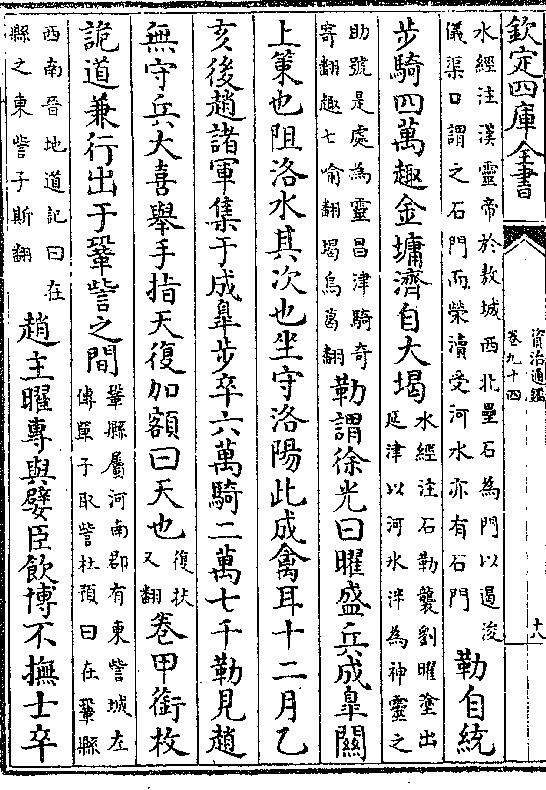 欽定四庫全書
資治通鑑
卷九十四
十八
水經注漢靈帝於敖城西北壘石為門以遏浚
儀渠口謂之石門而滎瀆受河水亦有石門
勒自統
步騎四萬趣金墉濟自大堨
水經注石勒襲劉曜塗出
延津以河水泮為神靈之
助號是處為靈昌津騎奇
寄翻趣七喻翻堨烏葛翻
勒謂徐光曰曜盛兵成臯關
上策也阻洛水其次也坐守洛陽此成禽耳十二月乙
亥後趙諸軍集于成臯步卒六萬騎二萬七千勒見趙
無守兵大喜舉手指天復加額曰天也
復扶
又翻
卷甲銜枚
詭道兼行出于鞏訾之間
鞏縣屬河南郡有東訾城左
傳單子取訾杜預曰在鞏縣
西南晉地道記曰在
縣之東訾子斯翻
趙主曜專與嬖臣飲博不撫士卒